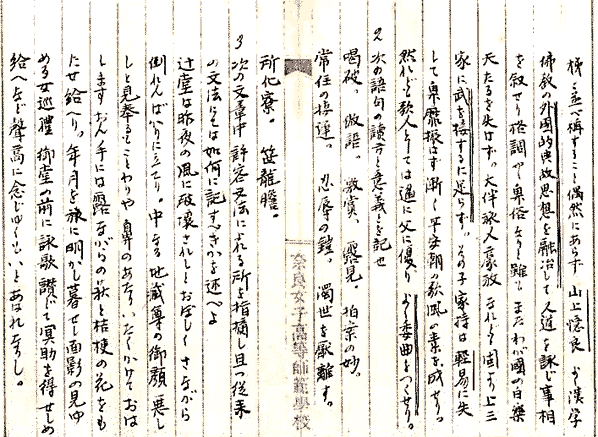 梯を並べ稱すること偶然にあらず 山上憶良 よく漢学
佛教の外國的典故思想を融冶して人道を詠じ事相
を叙せり格調やゝ卑俗なりと雖もまたわが國の白樂
天たるを失はず。大伴旅人も豪放なれど固より上三
家に武を接するに足らず。その子家持は軽易に失
して卑靡振はず漸く平安朝の歌風の素を成せり。
然れど歌人としては遥に父に優り よく委曲をつくせり。
2 次の語句の讀方と意義とを記せ
喝破。 傲語。 激賞。 露見。 拍案の妙。
常任の推運。 忍辱の鎧。 濁世を厭離す。
所化寮。 笹龍膽。
3 次の文章中許容文法によれる所を指摘し且つ従来
の文法にては如何に記すべきかを述べよ
辻堂は昨夜の風に破壊されしとおぼしくさながら
倒れんばかりに立てり。中なる地蔵尊の御顔 悪し
しと見奉るもことわりや鼻のあたりいたくかけておは
しますおん手には露ながらの萩と桔梗の花をも
たせ給へり。年月を旅に明かし暮せし面影の見ゆ
める女巡禮 御堂の前に詠歌讃じて冥助を得せしめ
給へなど聲高に念じゆくもいとあはれなりし。
奈良女子高等師範學校